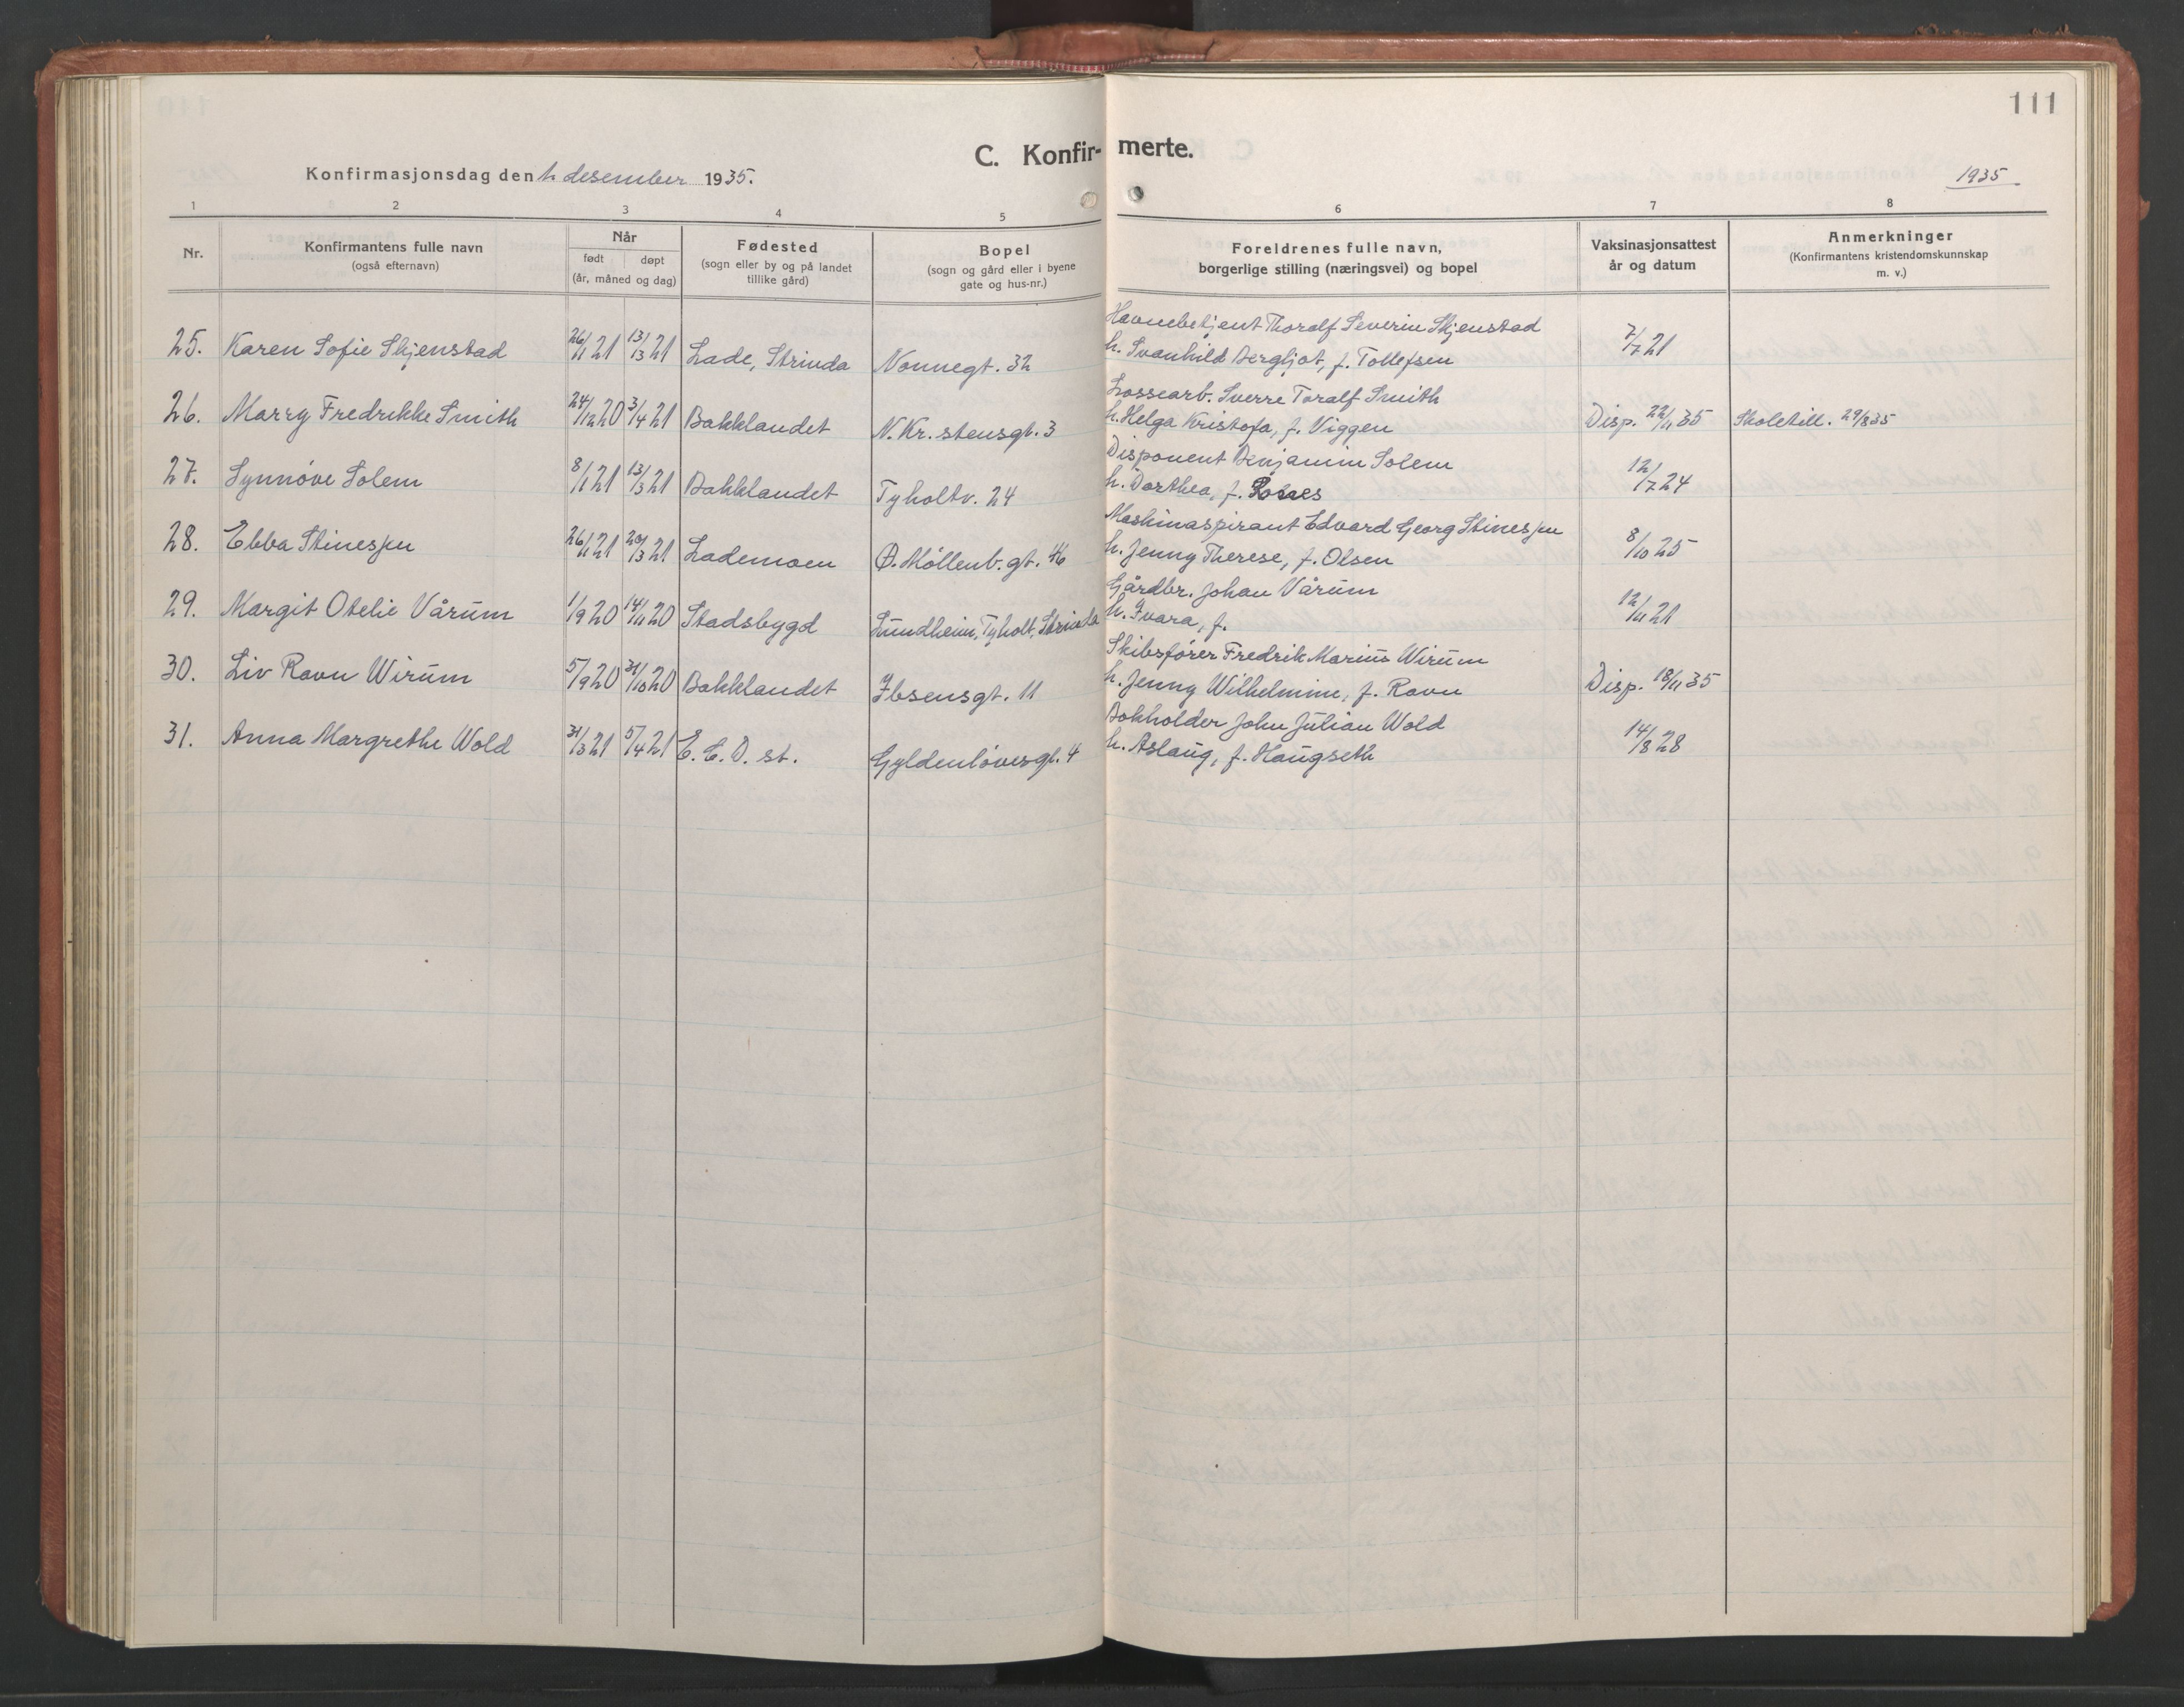 111
C. Konfirmerte.
Konfirmasjonsdag den 1. desember 1935.
1935
1 2 3 4 5 6 7 8
Nr. Konfirmantens fulle navn (også efternavn) Når født døpt (år, måned og dag) Fødested (sogn eller by og på landet tillike gård) Bopel (sogn og gård eller i byene gate og hus-nr.) Foreldrenes fulle navn, borgerlige stilling (næringsvei) og bopel Vaksinasjonsattest år og datum Anmerkninger (Konfirmantens kristendomskunnskap m. v.)
25. Karen Sofie Skjenstad 26/1 21 13/3 21 Lade, Strinda Nonnegt. 32 Havnebetjent Thoralf Severin Skjenstad
h. Svanhild Bergljot, f. Tollefsen 7/7 21
26. Marry Fredrikke Smith 24/12 20 3/4 21 Bakklandet N. Kr. stensgt. 3 Lossearb. Sverre Toralf Smith
h. Helga Kristofa, f. Viggen Disp. 22/11 35 Skoletill. 29/8 35
27. Synnøve Solem 8/1 21 13/3 21 Bakklandet Tyholtv. 24 Disponent Benjamin Solem
h. Dorthea, f. 12/7 24
28. Ebba Stinesen 26/11 21 20/3 21 Lademoen Ø. Møllenb. gt. 46 Maskinaspirant Edvard Georg Stinesen
h. Jenny Therese, f. Olsen 8/10 25
29. Margit Otelie Vårum 1/9 20 14/11 20 Stadsbygd Lundheim, Tyholt, Strinda Gårdbr. Johan Vårum
h. Ivara, f. 12/11 21
30. Liv Ravn Wirum 5/9 20 31/10 20 Bakklandet Ibsensgt. 11 Skibsfører Fredrik Marius Wirum
h. Jenny Wilhelmine, f. Ravn Disp. 18/11 35
31. Anna Margrethe Wold 31/3 21 5/4 21 E. C. D. st. Gyldenløvesgt. 4 Bokholder John Julian Wold
h. Aslaug, f. Haugseth 14/8 28